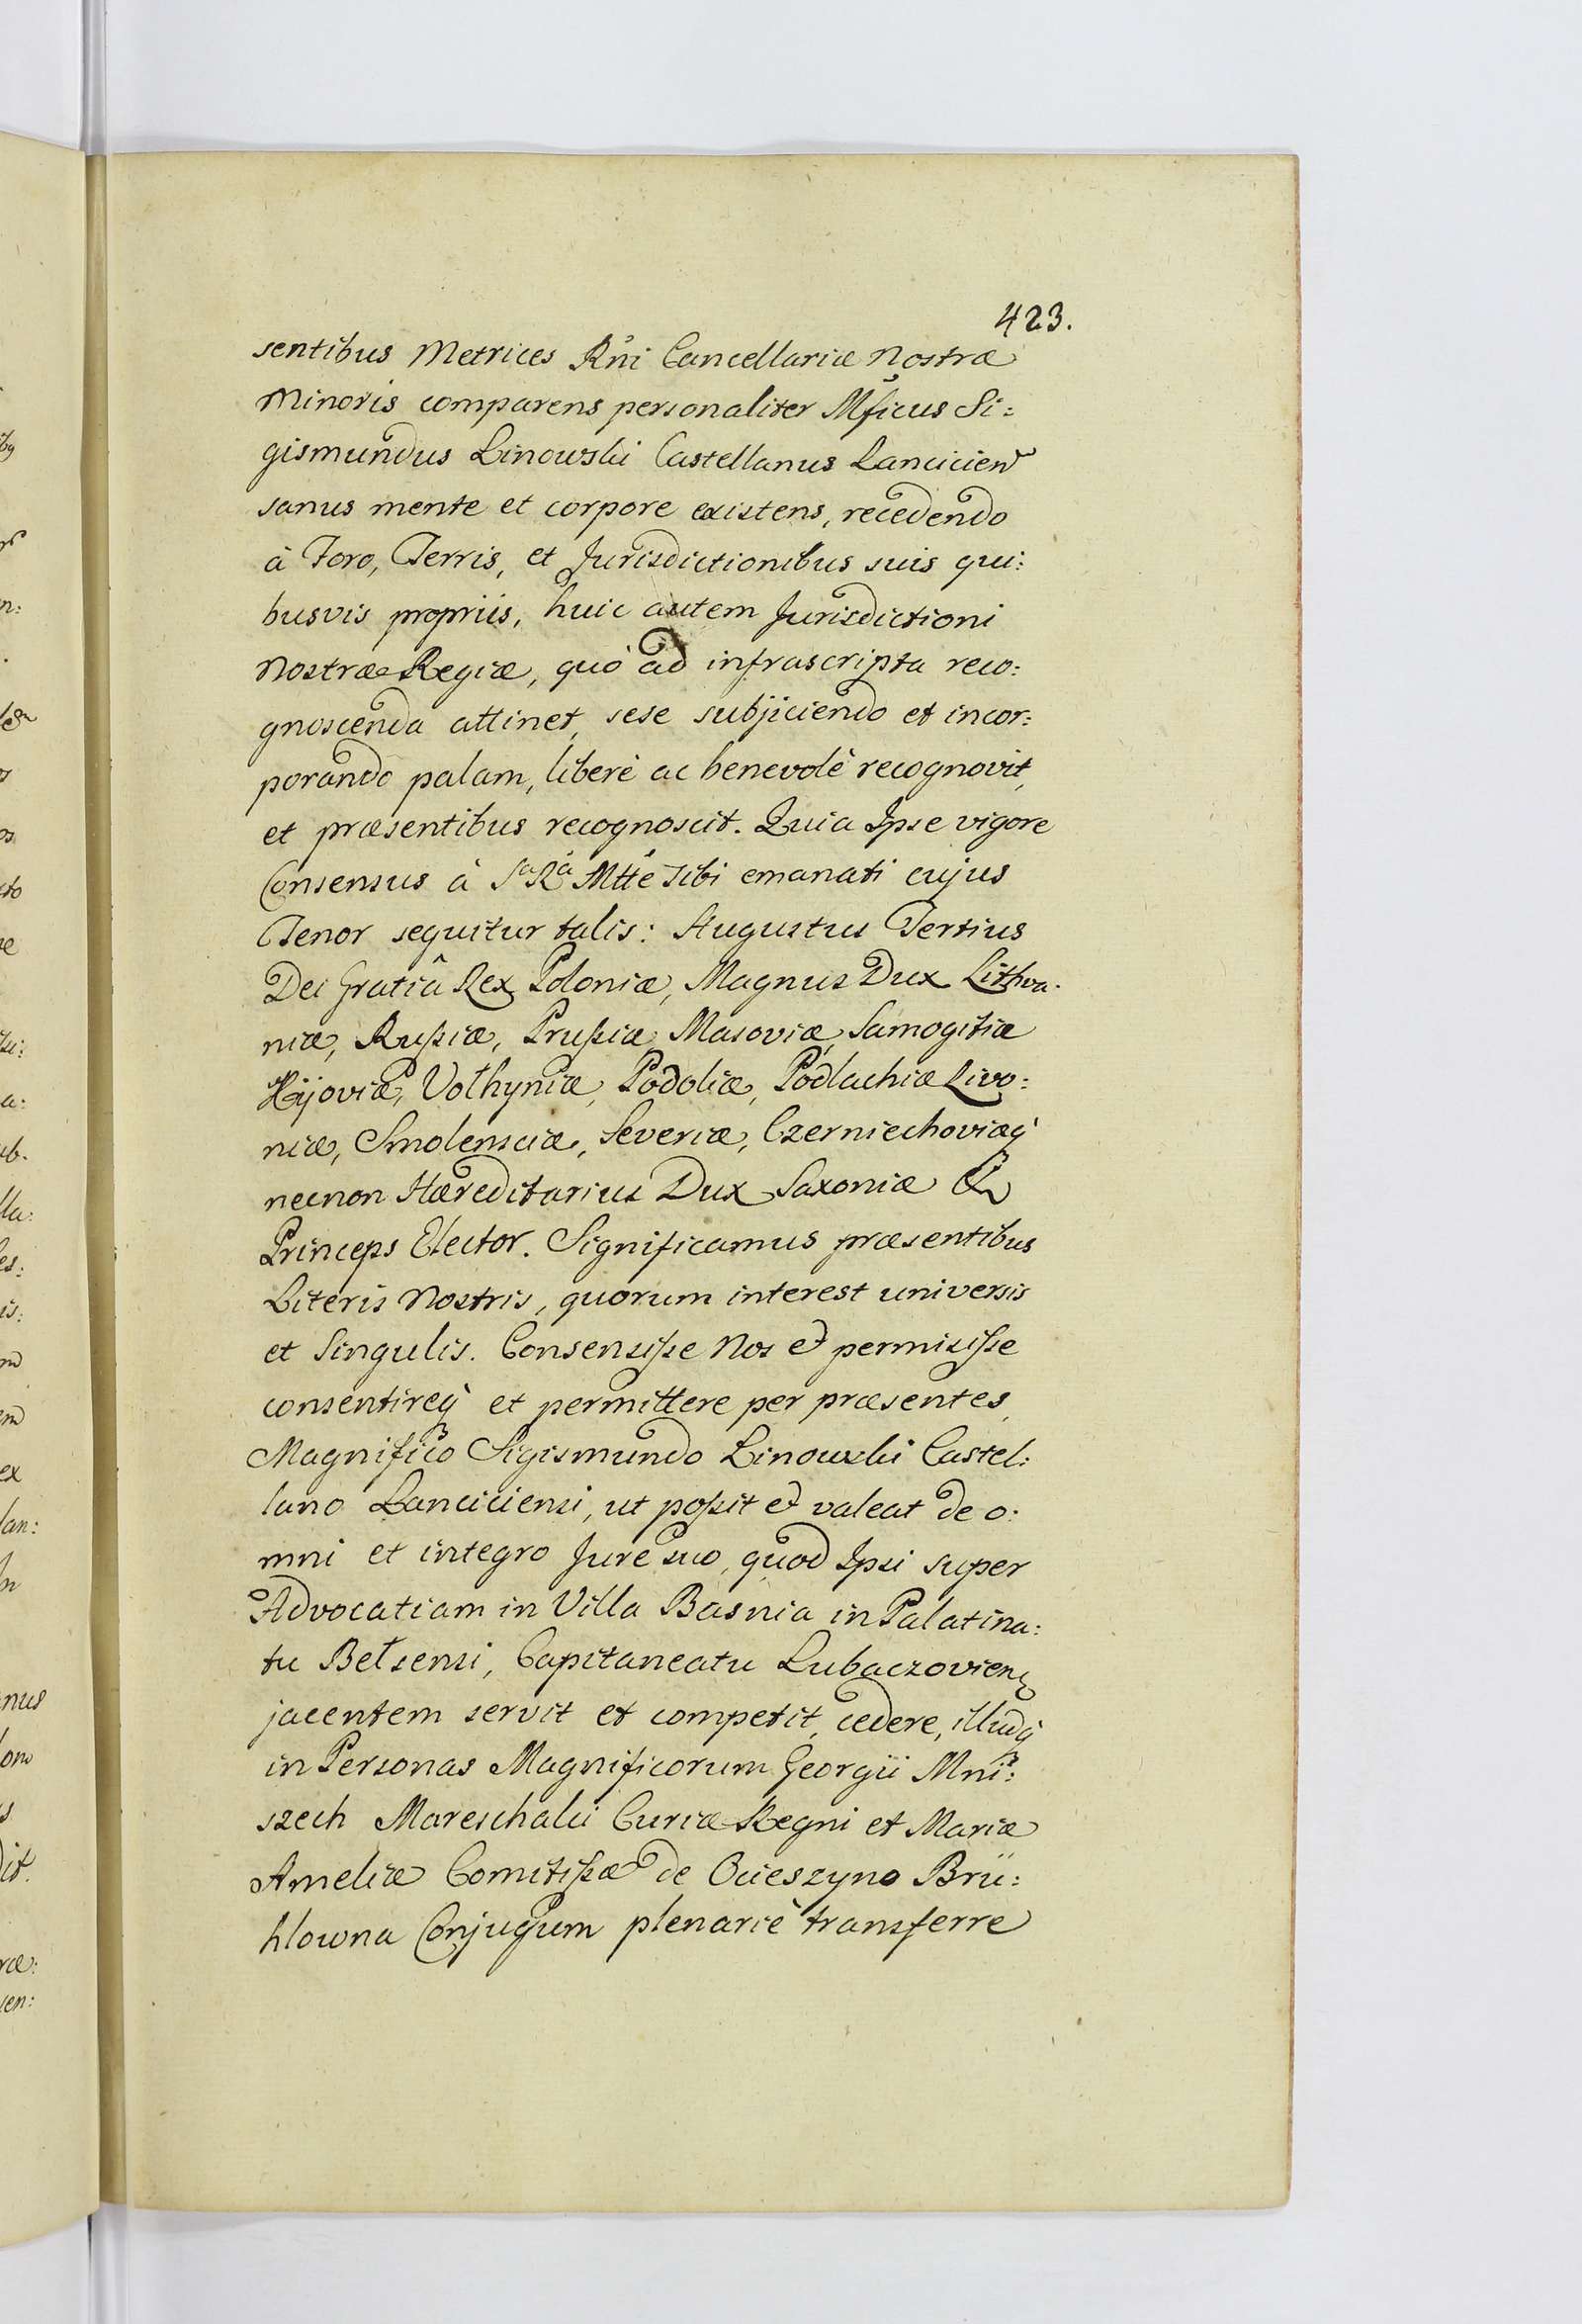 423.
sentibus Metrices Rńi Cancellariæ Nostræ
Minoris comparens personaliter Mficus Si:
gismundus Linowski Castellanus Lanciciens
sanus mente et corpore existens, recedendo
à Foro, Terris, et Jurisdictionibus suis qui:
busvis propriis, huic autem Jurisdictioni
Nostræ Regiæ, quò ad infrascripta reco:
gnoscenda attinet, sese subjiciendo et incor:
porando palam, liberè ac benevolè recognovit,
et præsentibus recognoscit. Quia Ipse vigore
Consensus à Sa Rà Mtte sibi emanati cujus
Tenor sequitur talis: Augustus Tertius
Dei Gratiâ Rex Poloniæ, Magnus Dux Lithva.
niæ, Rußiæ, Prußiæ, Masoviæ, Samogitiæ
Kijoviæ, Volhyniæ, Podoliæ, Podlachiæ Livo:
niæ, Smolensciæ, Severiæ, Czerniechoviæq́
necnon Hæreditarius Dux Saxoniæ &
Princeps Elector. Significamus præsentibus
Literis Nostris, quorum interest universis
et Singulis. Consensiße Nos et permisiße
consentireq́ et permittere per præsentes,
Magnifico Sigismundo Linowski Castel:
lano Lanciciensi, ut poßit et valeat de o:
mni et integro Jure suo, quod Ipsi super
Advocatiam in Villa Basnia in Palatina:
tu Belsensi, Capitaneatu Lubaczoviens
jacentem servit et competit, cedere, illudq́
in Personas Magnificorum Georgii Mni:
szech Mareschalci Curiæ Regni et Mariæ
Ameliæ Comitißæ de Ocieszyno Brü:
hlowna Conjugum plenariè transferre